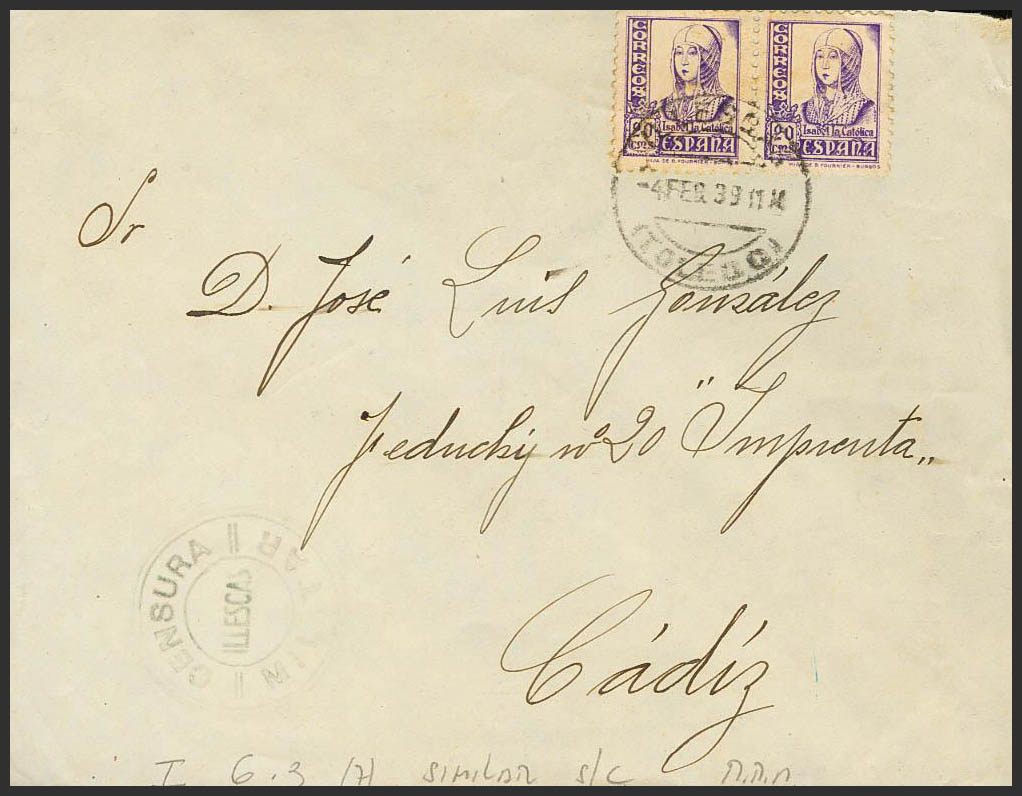 CORREOS CORREOS
20 Isabel la Católica 20 Isabel la Católica
CMS ESPAÑA CMS ESPAÑA
HIJA DE B. FOURNIER HIJA DE B. FOURNIER - BURGOS
-4 FEB. 39
(TOLEDO)
Sr
D. José Luis González
nº 20 "Imprenta"
Cádiz
CENSURA MILITAR
ILLESCAS
I 6.3 SIMILAR S/C